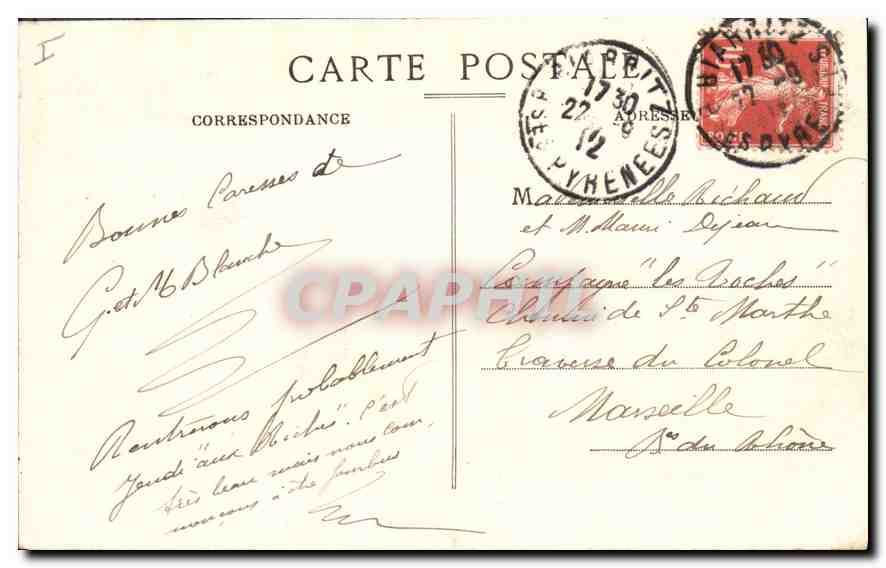 I
CARTE POSTALE
CORRESPONDANCE
ADRESSE
BIARRITZ
17 30
22 - 9
12
PYRENEES
BIARRITZ
17 30
22 - 9
Bonnes Caresses de
G. et M Blanche
Rentrerons probablement
jeudi "aux Roches". C'est
très beau mais nous com
mençons à être fourbus
Mademoiselle Richaud
et M. Mauri Dejean
Campagne "les Roches"
Chemin de Ste Marthe
Traverse du Colonel
Marseille
Bes du Rhône
CPAPHIL